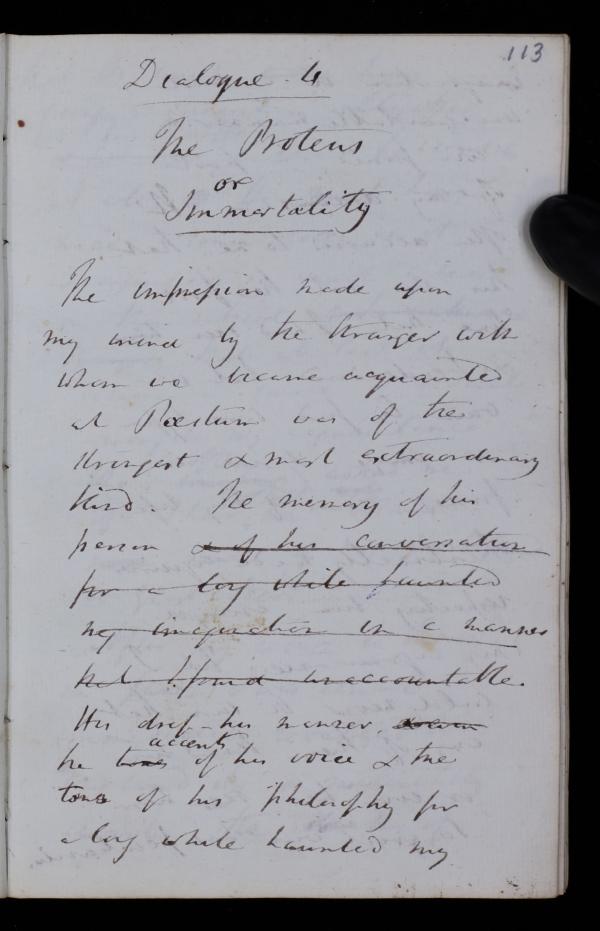 113
Dialogue. 4
The Proteus
or
Immortality
The impression made upon
my mind by the stranger with
whom we became acquainted
at Pæstum was of the
strongest & most extraordinary
kind. The memory of his
person & of his conversation
for a long while haunted
my imagination in a manner
that I found unaccountable.
His dress – his manner,
accents
he tones of his voice & the
tone of his philosophy for
a long while haunted my